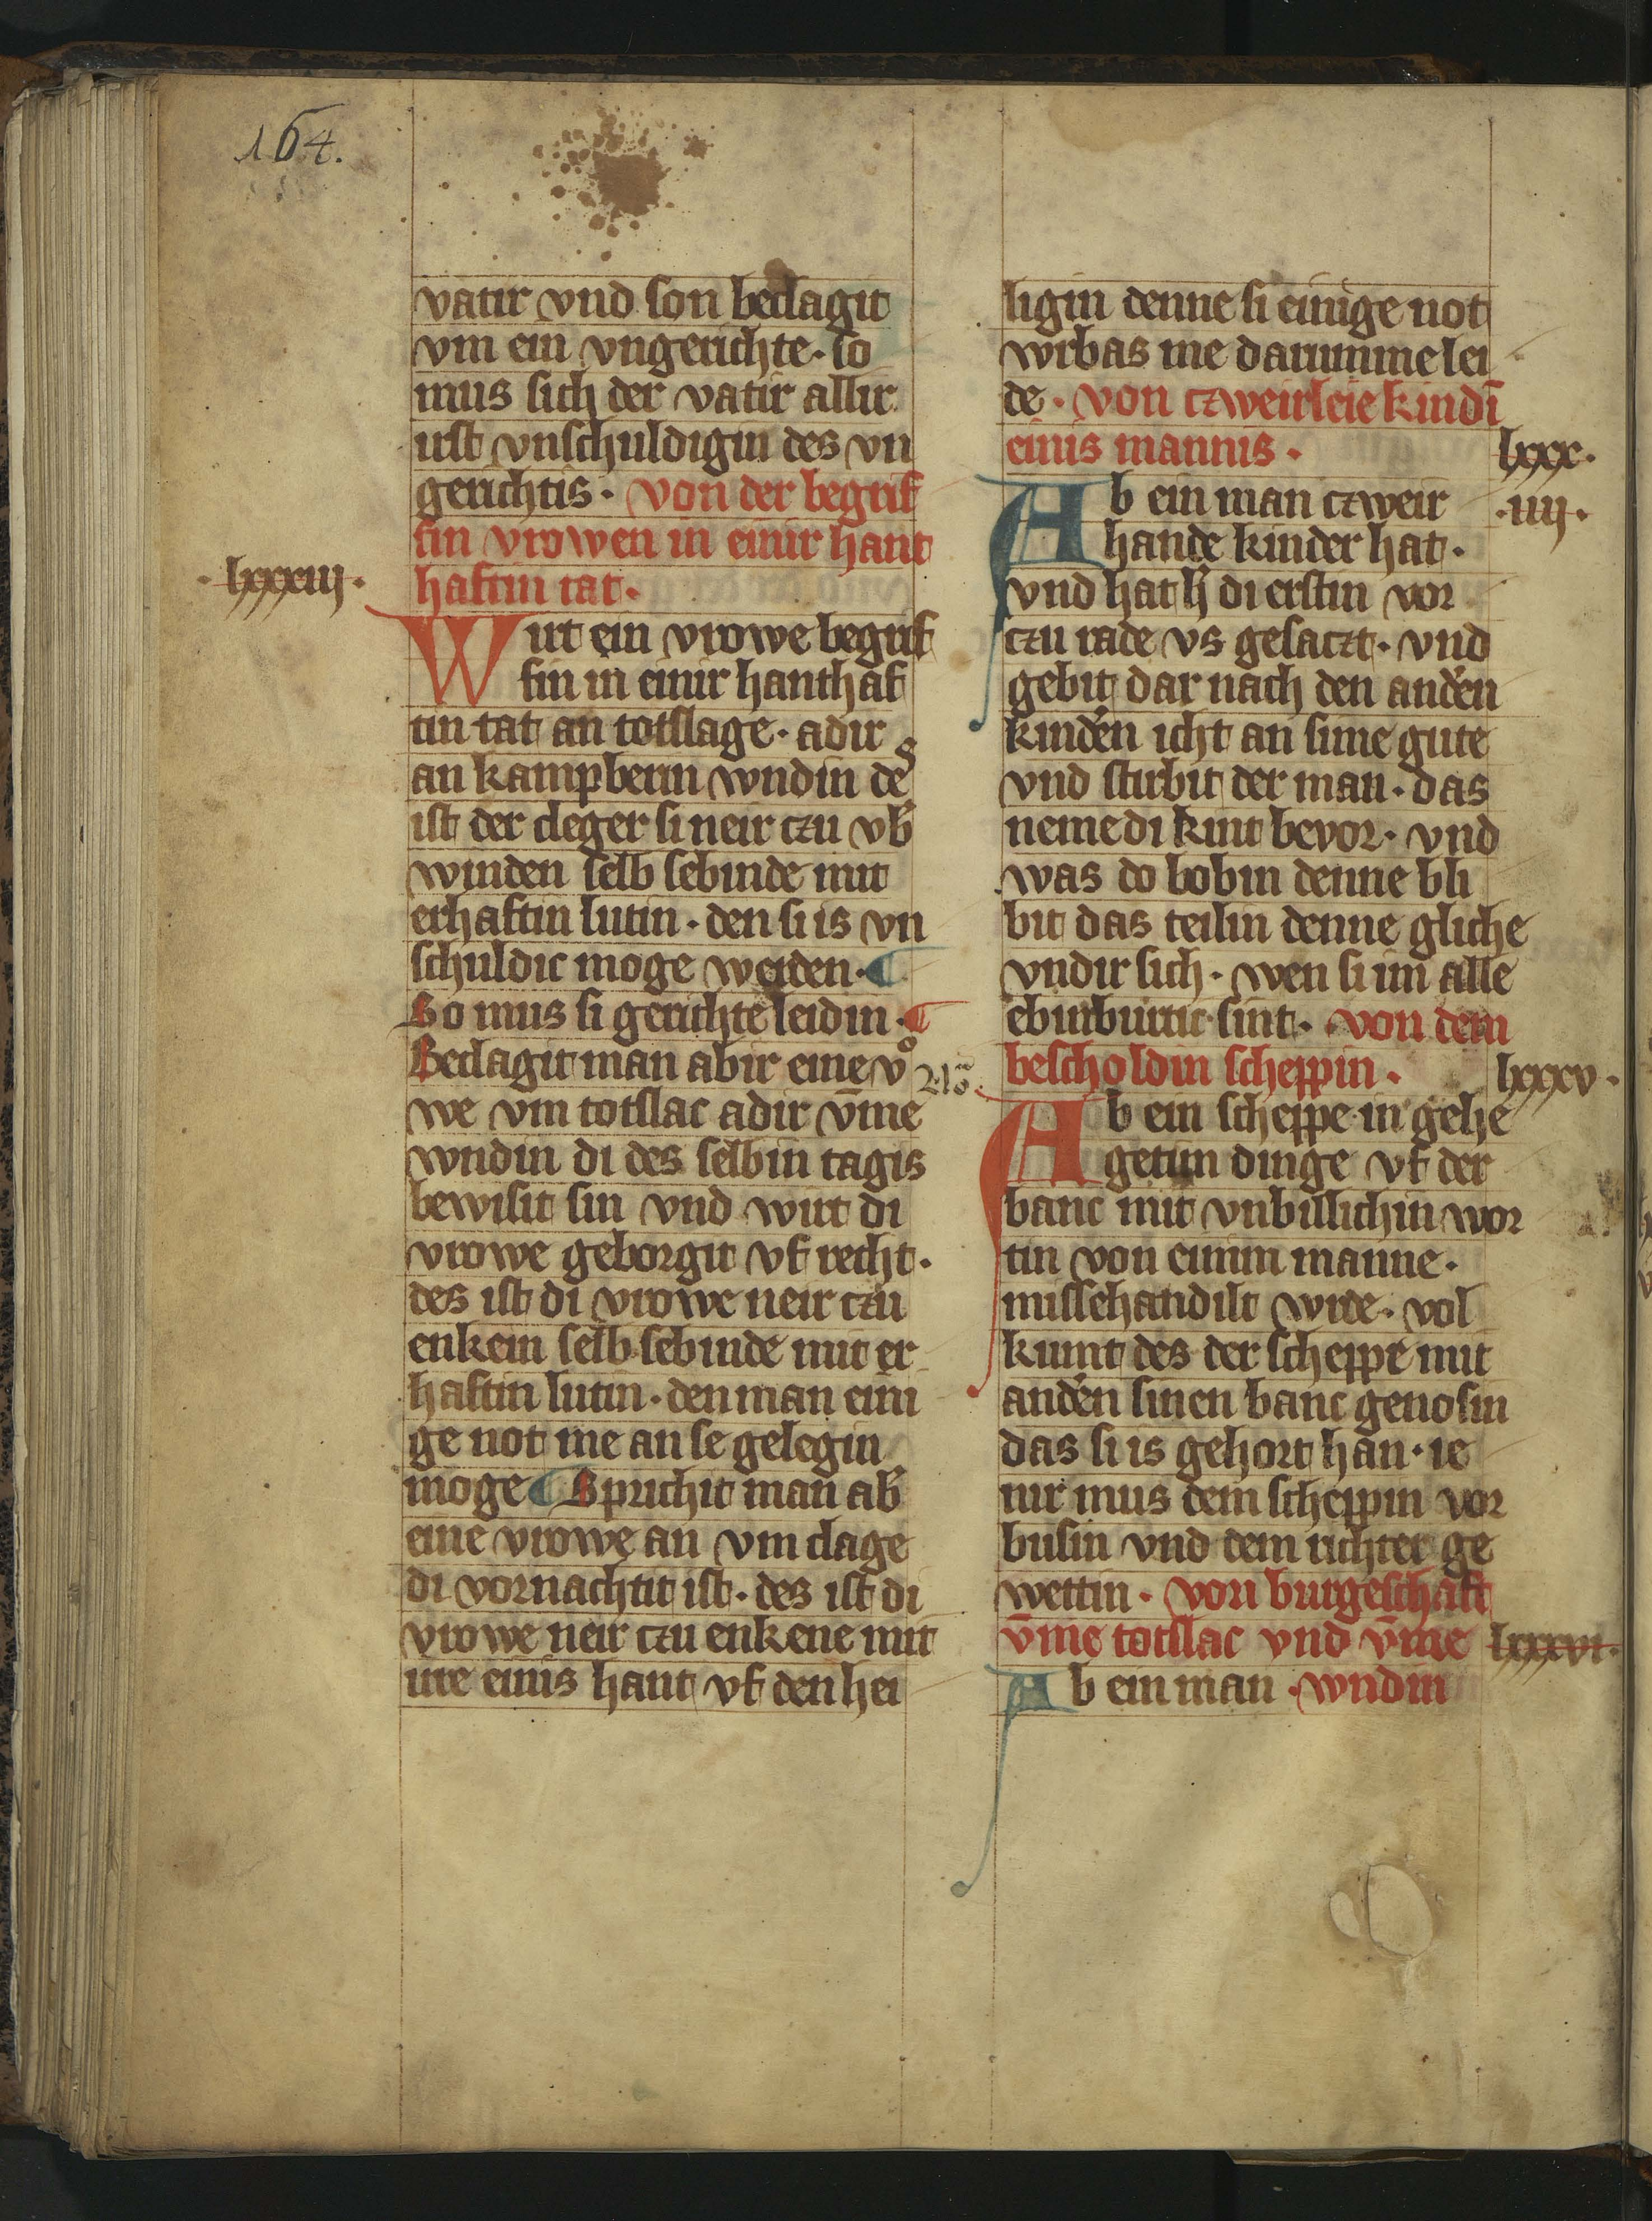 164.
vatir vnd son beclagit
vm ein vngerichte · so
mus sich der vatir allir
irst vnschuldigin des vn
gerichtis · von der begrif
fin vrowen in einir hant
· lxxxiij ·
haftin tat ·
Wirt ein vrowe begrif
fin in einir hanthaf
tin tat an totslage · adir
an kampberin wndin des
ist der cleger si neir czu vb̄
winden selb sebinde mit
erhaftin lutin · den si is vn
schuldic moge werden · ¶
So mus si gerichte leidin · ¶
Beclagit man abir eine vͦ
we vm totslac adir v̄me
wndin di des selbin tagis
bewisit sin vnd wirt di
vrowe geborgit vf recht ·
des ist di vrowe neir czu
enkein selb sebinde mit er
haftin lutin · den man eini
ge not me an se gelegin
moge ¶ Sprichit man ab̄
eine vrowe an vm clage
di vornachtit ist · des ist di
vrowe neir czu enkene mit
ire einis hant vf den hei
ligin denne si einige not
wrbas me darumme lei
de · von czweirleie kindī
einis mannis ·
lxxx ·
· iiij ·
Ab ein man czweir
hande kinder hat ·
vnd hat h̄ di erstin vor
czu rade vs gesaczt · vnd
gebit dar nach den andēn
kindēn icht an sime gute
vnd stirbit der man · das
neme di kint bevor · vnd
was do bobin denne bli
bit das teilin denne gliche
vndir sich · wen si im alle
ebinburtic sint · von dem
bescholdin scheppin ·
lxxxv ·
Ab ein scheppe in gehe
getim dinge vf der
banc mit vnbillichin wor
tin von einim manne ·
missehandilt wrde · vol
kumt des der scheppe mit
andēn sinen banc genosin
das si is gehort han · ie
nir mus dem scheppin vor
busin vnd dem richter ge
wettin · von burgeschaft
v̄me totslac vnd v̄me
lxxxvi ·
Ab ein man · wndin